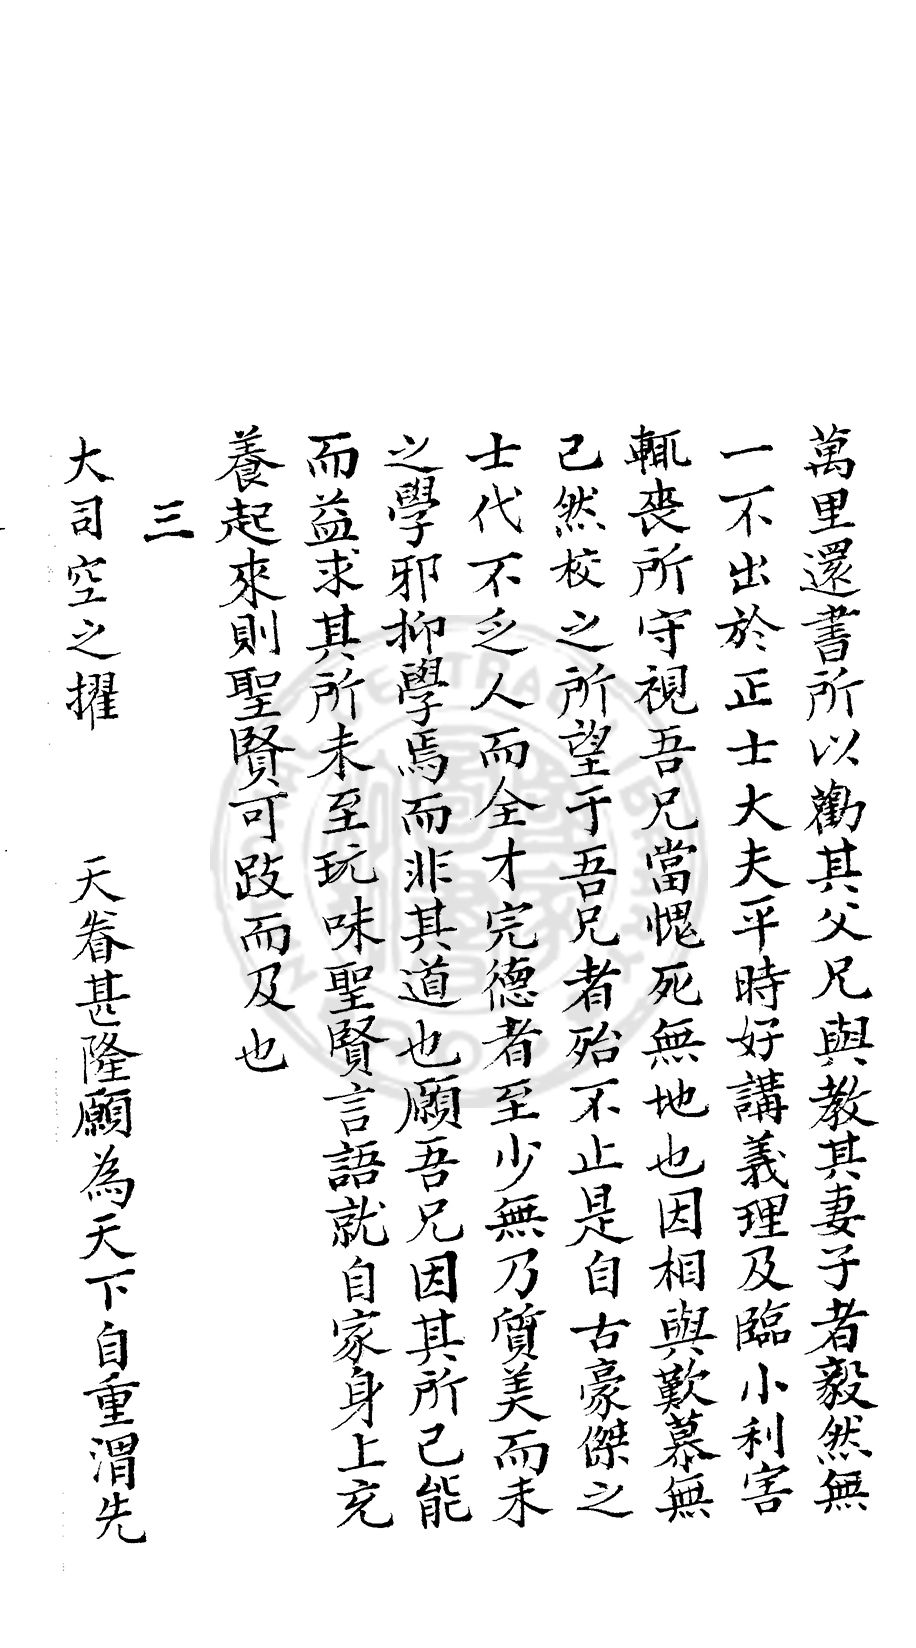 萬里還書所以勸其父兄與教其妻子者毅然無
一不出於正士大夫平時好講義理及臨小利害
輒喪所守視吾兄當愧死無地也因相與歎慕無
已然校之所望于吾兄者殆不止是自古豪傑之
士代不乏人而全才完德者至少無乃質美而未
之學邪抑學焉而非其道也願吾兄因其所已能
而益求其所未至玩味聖賢言語就自家身上充
養起來則聖賢可跂而及也
三
大司空之擢 天眷甚隆願為天下自重渭先